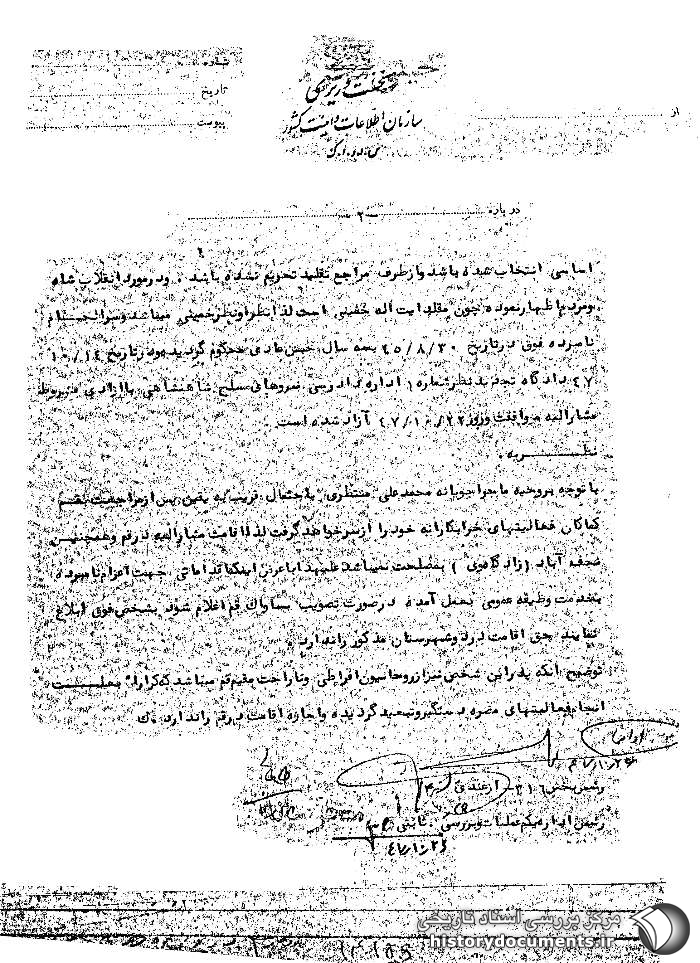 شماره
تاریخ
پیوست
نخست وزیری
سازمان اطلاعات و امنیت کشور
س.ا.و.ا.ک
از
درباره ۲
اساسی انتخاب شده باشد و از طرف مراجع تقلید تحریم نشده باشد . و در مورد انقلاب شاه
و مردم اظهار نموده چون مقلد ایت اله خمینی است لذا نظر او نظر خمینی میباشد و سرانجام
نامبرده فوق در تاریخ ۴۵/۸/۳۰ به سه سال حبس عادی محکوم گردیده بود در تاریخ ۱۰/۱۴
۴۷ دادگاه تجدید نظر شماره ۱ اداره دادرسی نیروهای مسلح شاهنشاهی با ازادی مشروط
مشارالیه موافقت و روز ۴۷/۱۰/۲۲ آزاد شده است .
نظریه .
با توجه بروحیه ماجراجویانه محمدعلی منتظری باحتمال قریب به یقین پس از مراجعت بقم
کماکان فعالیتهای خرابکارانه خود را از سر خواهد گرفت لذا اقامت مشارالیه در قم و همچنین
نجف آباد (زادگاه وی ) بمصلحت نمیباشد علیهذا با عرض اینکه اقداماتی جهت اعزام نامبرده
بخدمت وظیفه عمومی بعمل آمده در صورت تصویب بساواک قم اعلام شود بشخص فوق ابلاغ
نمایند حق اقامت در دو شهرستان مذکور را ندارد .
توضیح آنکه پدر این شخص نیز از روحانیون افراطی و ناراحت مقیم قم میباشد که کرارا بعلت
انجام فعالیتهای مضره دستگیر و تبعید گردیده و اجازه اقامت در قم را ندارد . ک
رئیس بخش ۳۱۶ - ازغندی
رئیس اداره یکم عملیات و بررسی . ثابتی
مرکز بررسی اسناد تاریخی
historydocuments.ir